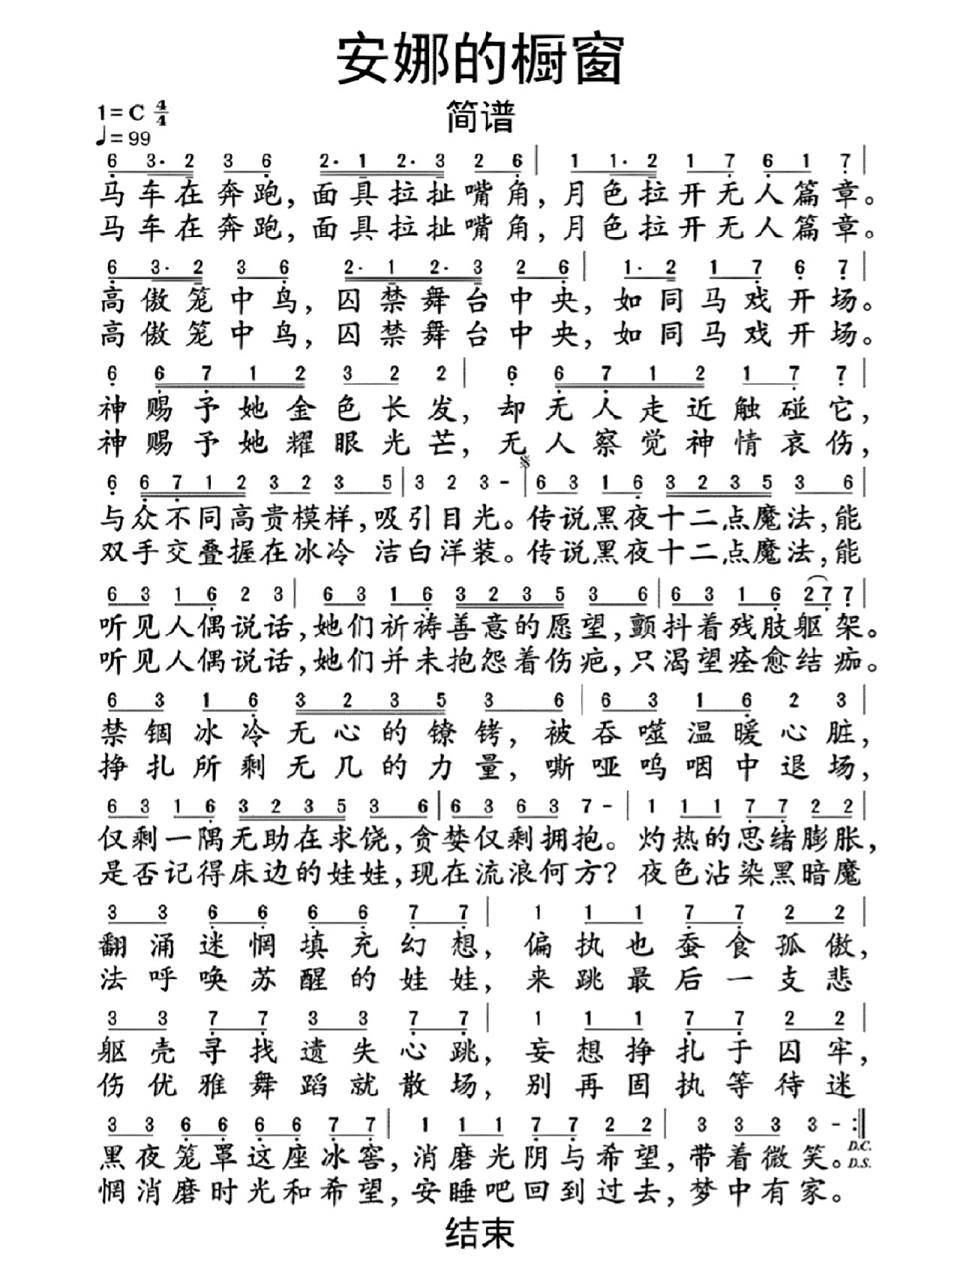 安娜的橱窗
简谱
1=C 4/4
♩=99
6 3· 2 3 6 2· 1 2· 3 2 6 | 1 1· 2 1 7 6 1 7 |
马车在奔跑，面具拉扯嘴角，月色拉开无人篇章。
马车在奔跑，面具拉扯嘴角，月色拉开无人篇章。
6 3· 2 3 6 2· 1 2· 3 2 6 | 1· 2 1 7 6 7 |
高傲笼中鸟，囚禁舞台中央，如同马戏开场。
高傲笼中鸟，囚禁舞台中央，如同马戏开场。
6 6 7 1 2 3 2 2 | 6 6 7 1 2 1 7 7 |
神赐予她金色长发，却无人走近触碰它，
神赐予她耀眼光芒，无人察觉神情哀伤，
6 6 7 1 2 3 2 3 5 | 3 2 3 - | 6 3 1 6 3 2 3 5 3 6 |
与众不同高贵模样，吸引目光。传说黑夜十二点魔法，能
双手交叠握在冰冷 洁白洋装。传说黑夜十二点魔法，能
6 3 1 6 2 3 | 6 3 1 6 3 2 3 5 3 6 | 6 3 1 6 2 7 7 |
听见人偶说话，她们祈祷善意的愿望，颤抖着残肢躯架。
听见人偶说话，她们并未抱怨着伤疤，只渴望痊愈结痂。
6 3 1 6 3 2 3 5 3 6 | 6 3 1 6 2 3 |
禁锢冰冷无心的镣铐，被吞噬温暖心脏，
挣扎所剩无几的力量，嘶哑呜咽中退场，
6 3 1 6 3 2 3 5 3 6 | 6 3 6 3 7 - | 1 1 1 7 7 2 2 |
仅剩一隅无助在求饶，贪婪仅剩拥抱。灼热的思绪膨胀，
是否记得床边的娃娃，现在流浪何方？夜色沾染黑暗魔
3 3 6 6 6 6 7 7 | 1 1 1 7 7 2 2 |
翻涌迷惘填充幻想，偏执也蚕食孤傲，
法呼唤苏醒的娃娃，来跳最后一支悲
3 3 7 7 3 3 7 7 | 1 1 1 7 7 2 2 |
躯壳寻找遗失心跳，妄想挣扎于囚牢，
伤优雅舞蹈就散场，别再固执等待迷
3 3 6 6 6 6 7 7 | 1 1 1 7 7 2 2 | 3 3 3 3 - :||
黑夜笼罩这座冰窖。消磨光阴与希望，带着微笑。D.C. D.S.
惘消磨时光和希望，安睡吧回到过去，梦中有家。
结束